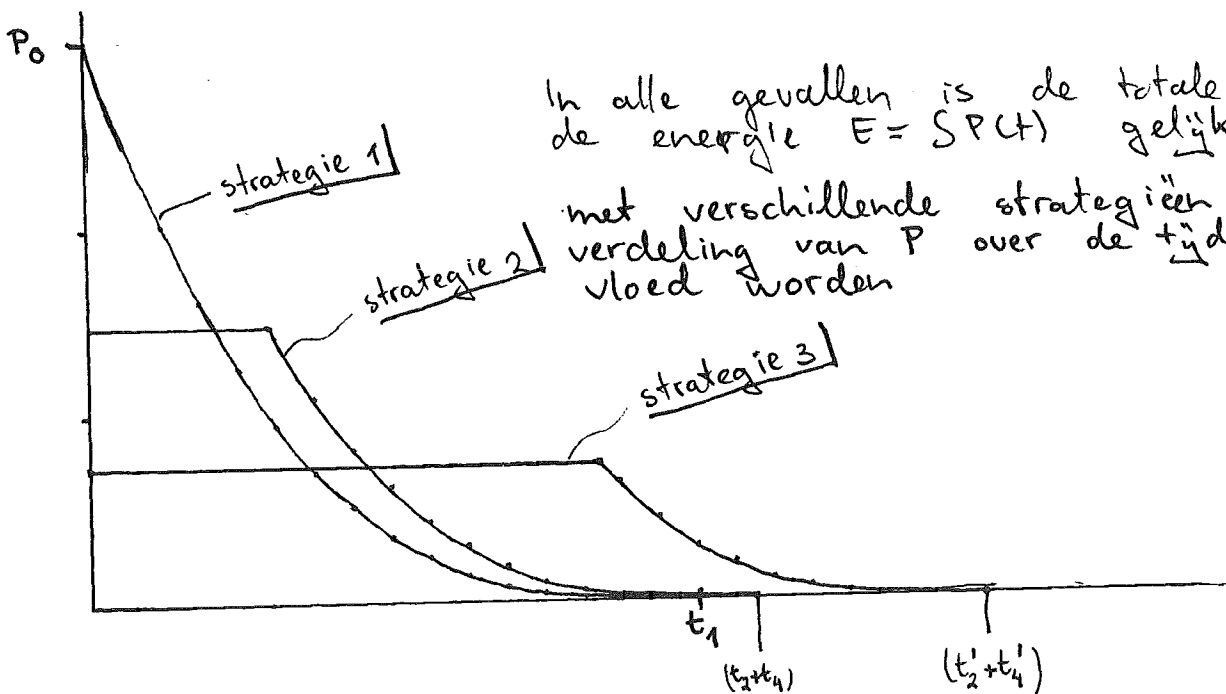 P₀
In alle gevallen is de totale
de energie E = ∫P(t) gelijk
met verschillende strategieën
verdeling van P over de tijd
vloed worden
strategie 1
strategie 2
strategie 3
t₁
(t₂+t₄)
(t₂'+t₄')